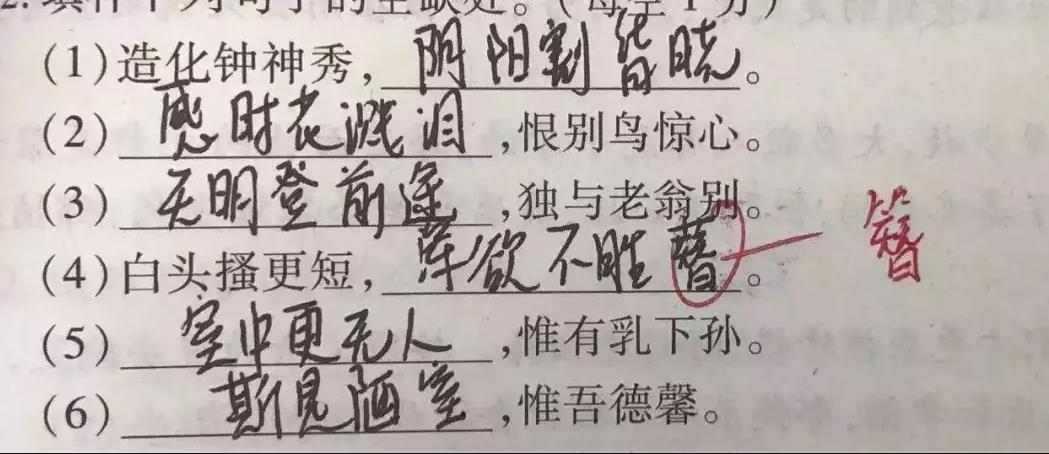 2. 下列句子的空缺处。(每空 1 分)
(1) 造化钟神秀, 阴阳割昏晓。
(2) 感时花溅泪, 恨别鸟惊心。
(3) 天明登前途, 独与老翁别。
(4) 白头搔更短, 浑欲不胜。 簪
(5) 室中更无人, 惟有乳下孙。
(6) 斯是陋室, 惟吾德馨。